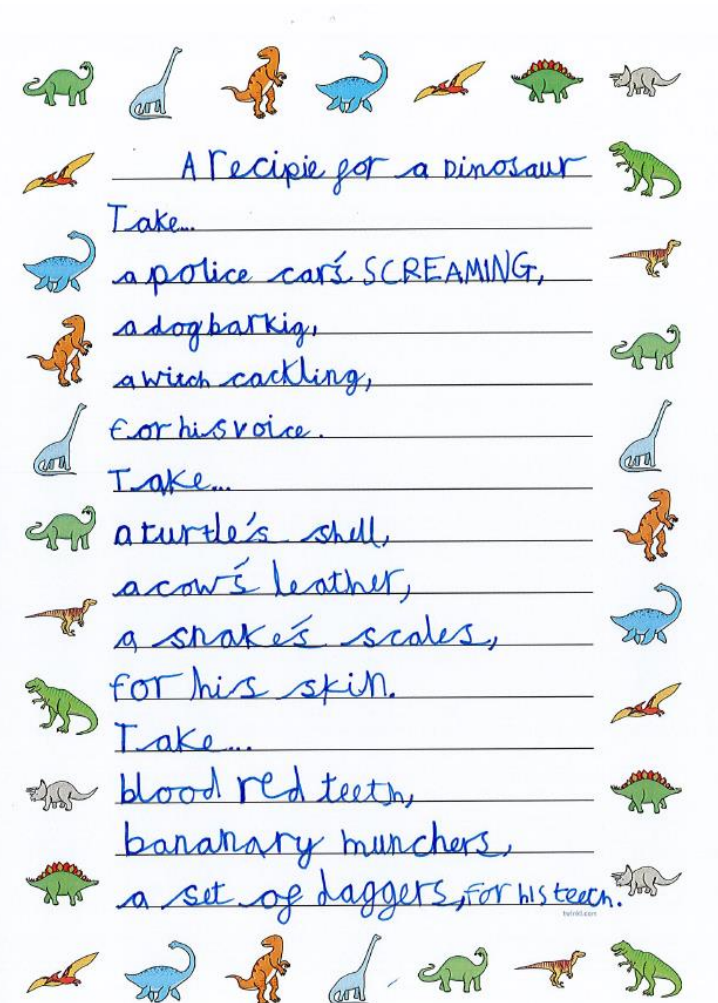 A recipie for a Dinosaur
Take...
a police car's SCREAMING,
a dog barkig,
a witch cackling,
for his voice.
Take...
a turtle's shell,
a cow's leather,
a snake's scales,
for his skin.
Take...
blood red teeth,
bananary munchers,
a set of daggers, for his teeth.
twinkl.com